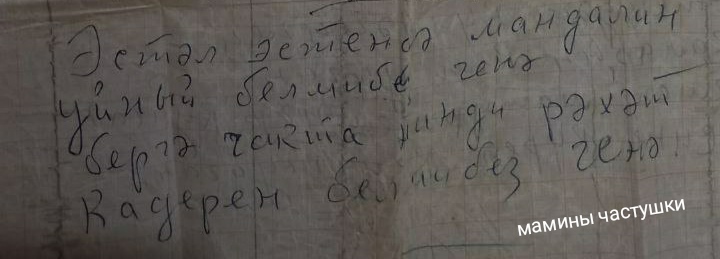 Эстәл эстенә мандалин
уйный белмибе генә
бергә чакта нинди рәхәт
Кадерен белмибез генә.
мамины частушки